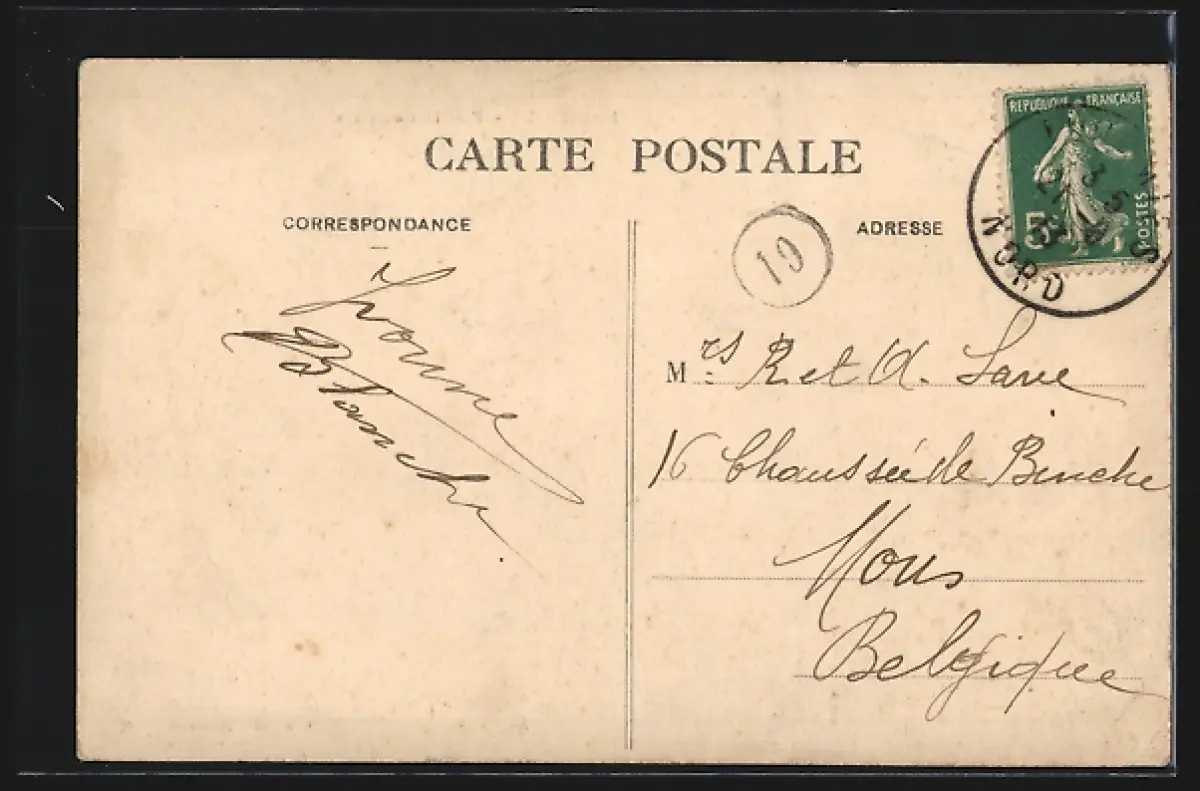 CARTE POSTALE
CORRESPONDANCE
ADRESSE
REPUBLIQUE FRANÇAISE
5
POSTES
NORD
10
Yvonne
Blanche
Mrs R et A. Lave
16 Chaussée de Binche
Mons
Belgique